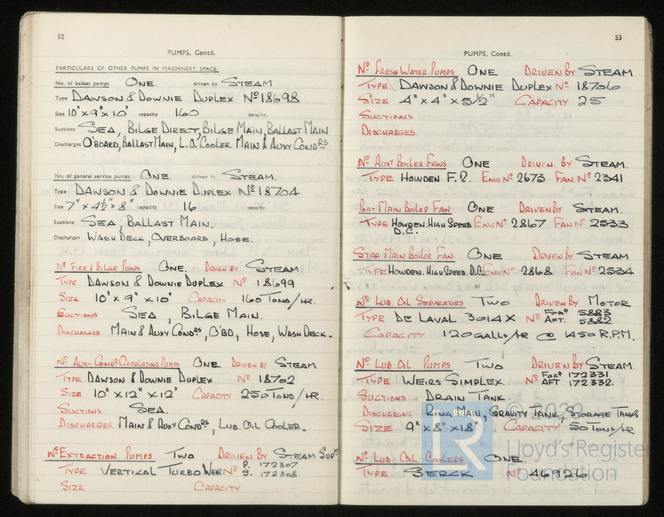 52
PUMPS, Contd.
PARTICULARS OF OTHER PUMPS IN MACHINERY SPACE
No. of ballast pumps ONE driven by STEAM
Type DAWSON & DOWNIE DUPLEX Nº 18698
Size 10"×9"×10" capacity 160 tons/hr.
Suctions SEA, BILGE DIRECT, BILGE MAIN, BALLAST MAIN
Discharges O'BOARD, BALLAST MAIN, L.O. COOLER MAIN & AUXY CONDRS
No. of general service pumps ONE. driven by STEAM.
Type DAWSON & DOWNIE DUPLEX Nº 18704
Size 7"×4½"×8" capacity 16 tons/hr.
Suctions SEA, BALLAST MAIN.
Discharges WASH DECK, OVERBOARD, HOSE.
Nº FIRE & BILGE PUMPS ONE. DRIVEN BY STEAM
TYPE DAWSON & DOWNIE DUPLEX Nº 18699
SIZE 10"×9"×10" CAPACITY 160 TONS/HR.
SUCTIONS SEA, BILGE MAIN.
DISCHARGES MAIN & AUXY CONDRS, O'BD, HOSE, WASH DECK.
Nº AUXY CONDR CIRCULATING PUMP ONE DRIVEN BY STEAM
TYPE DAWSON & DOWNIE DUPLEX Nº 18702
SIZE 10"×12"×12" CAPACITY 250 TONS/HR.
SUCTIONS SEA.
DISCHARGES MAIN & AUXY CONDRS, LUB. OIL COOLER.
Nº EXTRACTION PUMPS TWO DRIVEN BY STEAM
TYPE VERTICAL TURBO WEIR Nº P. 172307
S. 172308
SIZE CAPACITY
53
PUMPS, Contd.
Nº FRESH WATER PUMPS ONE DRIVEN BY STEAM
TYPE DAWSON & DOWNIE DUPLEX Nº 18706
SIZE 4"×4"×5½" CAPACITY 25
SUCTIONS
DISCHARGES
Nº AUXY BOILER FANS ONE DRIVEN BY STEAM.
TYPE HOWDEN F.R. ENG Nº 2673 FAN Nº 2341
PORT MAIN BOILER FAN ONE DRIVEN BY STEAM.
TYPE HOWDEN HIGH SPEED D.C. ENG Nº 2867 FAN Nº 2533
STAR MAIN BOILER FAN ONE DRIVEN BY STEAM
TYPE HOWDEN. HIGH SPEED. D.C. ENG Nº 2868 FAN Nº 2534
Nº LUB OIL SEPARATORS TWO DRIVEN BY MOTOR
TYPE DE LAVAL 3014X Nº FORD 5883
AFT. 5882
CAPACITY 120 GALLS/HR @ 1450 R.P.M.
Nº LUB. OIL PUMPS TWO DRIVEN BY STEAM.
TYPE WEIRS SIMPLEX. Nº FORD 172331
AFT 172332.
SUCTIONS DRAIN TANK
DISCHARGES RING MAIN, GRAVITY TANK, STORAGE TANKS
SIZE 9"×8"×18" CAPACITY 50 TONS/HR
Nº LUB OIL COOLERS ONE.
TYPE SERCK Nº 46926
© 2022
Lloyd's Register
Foundation